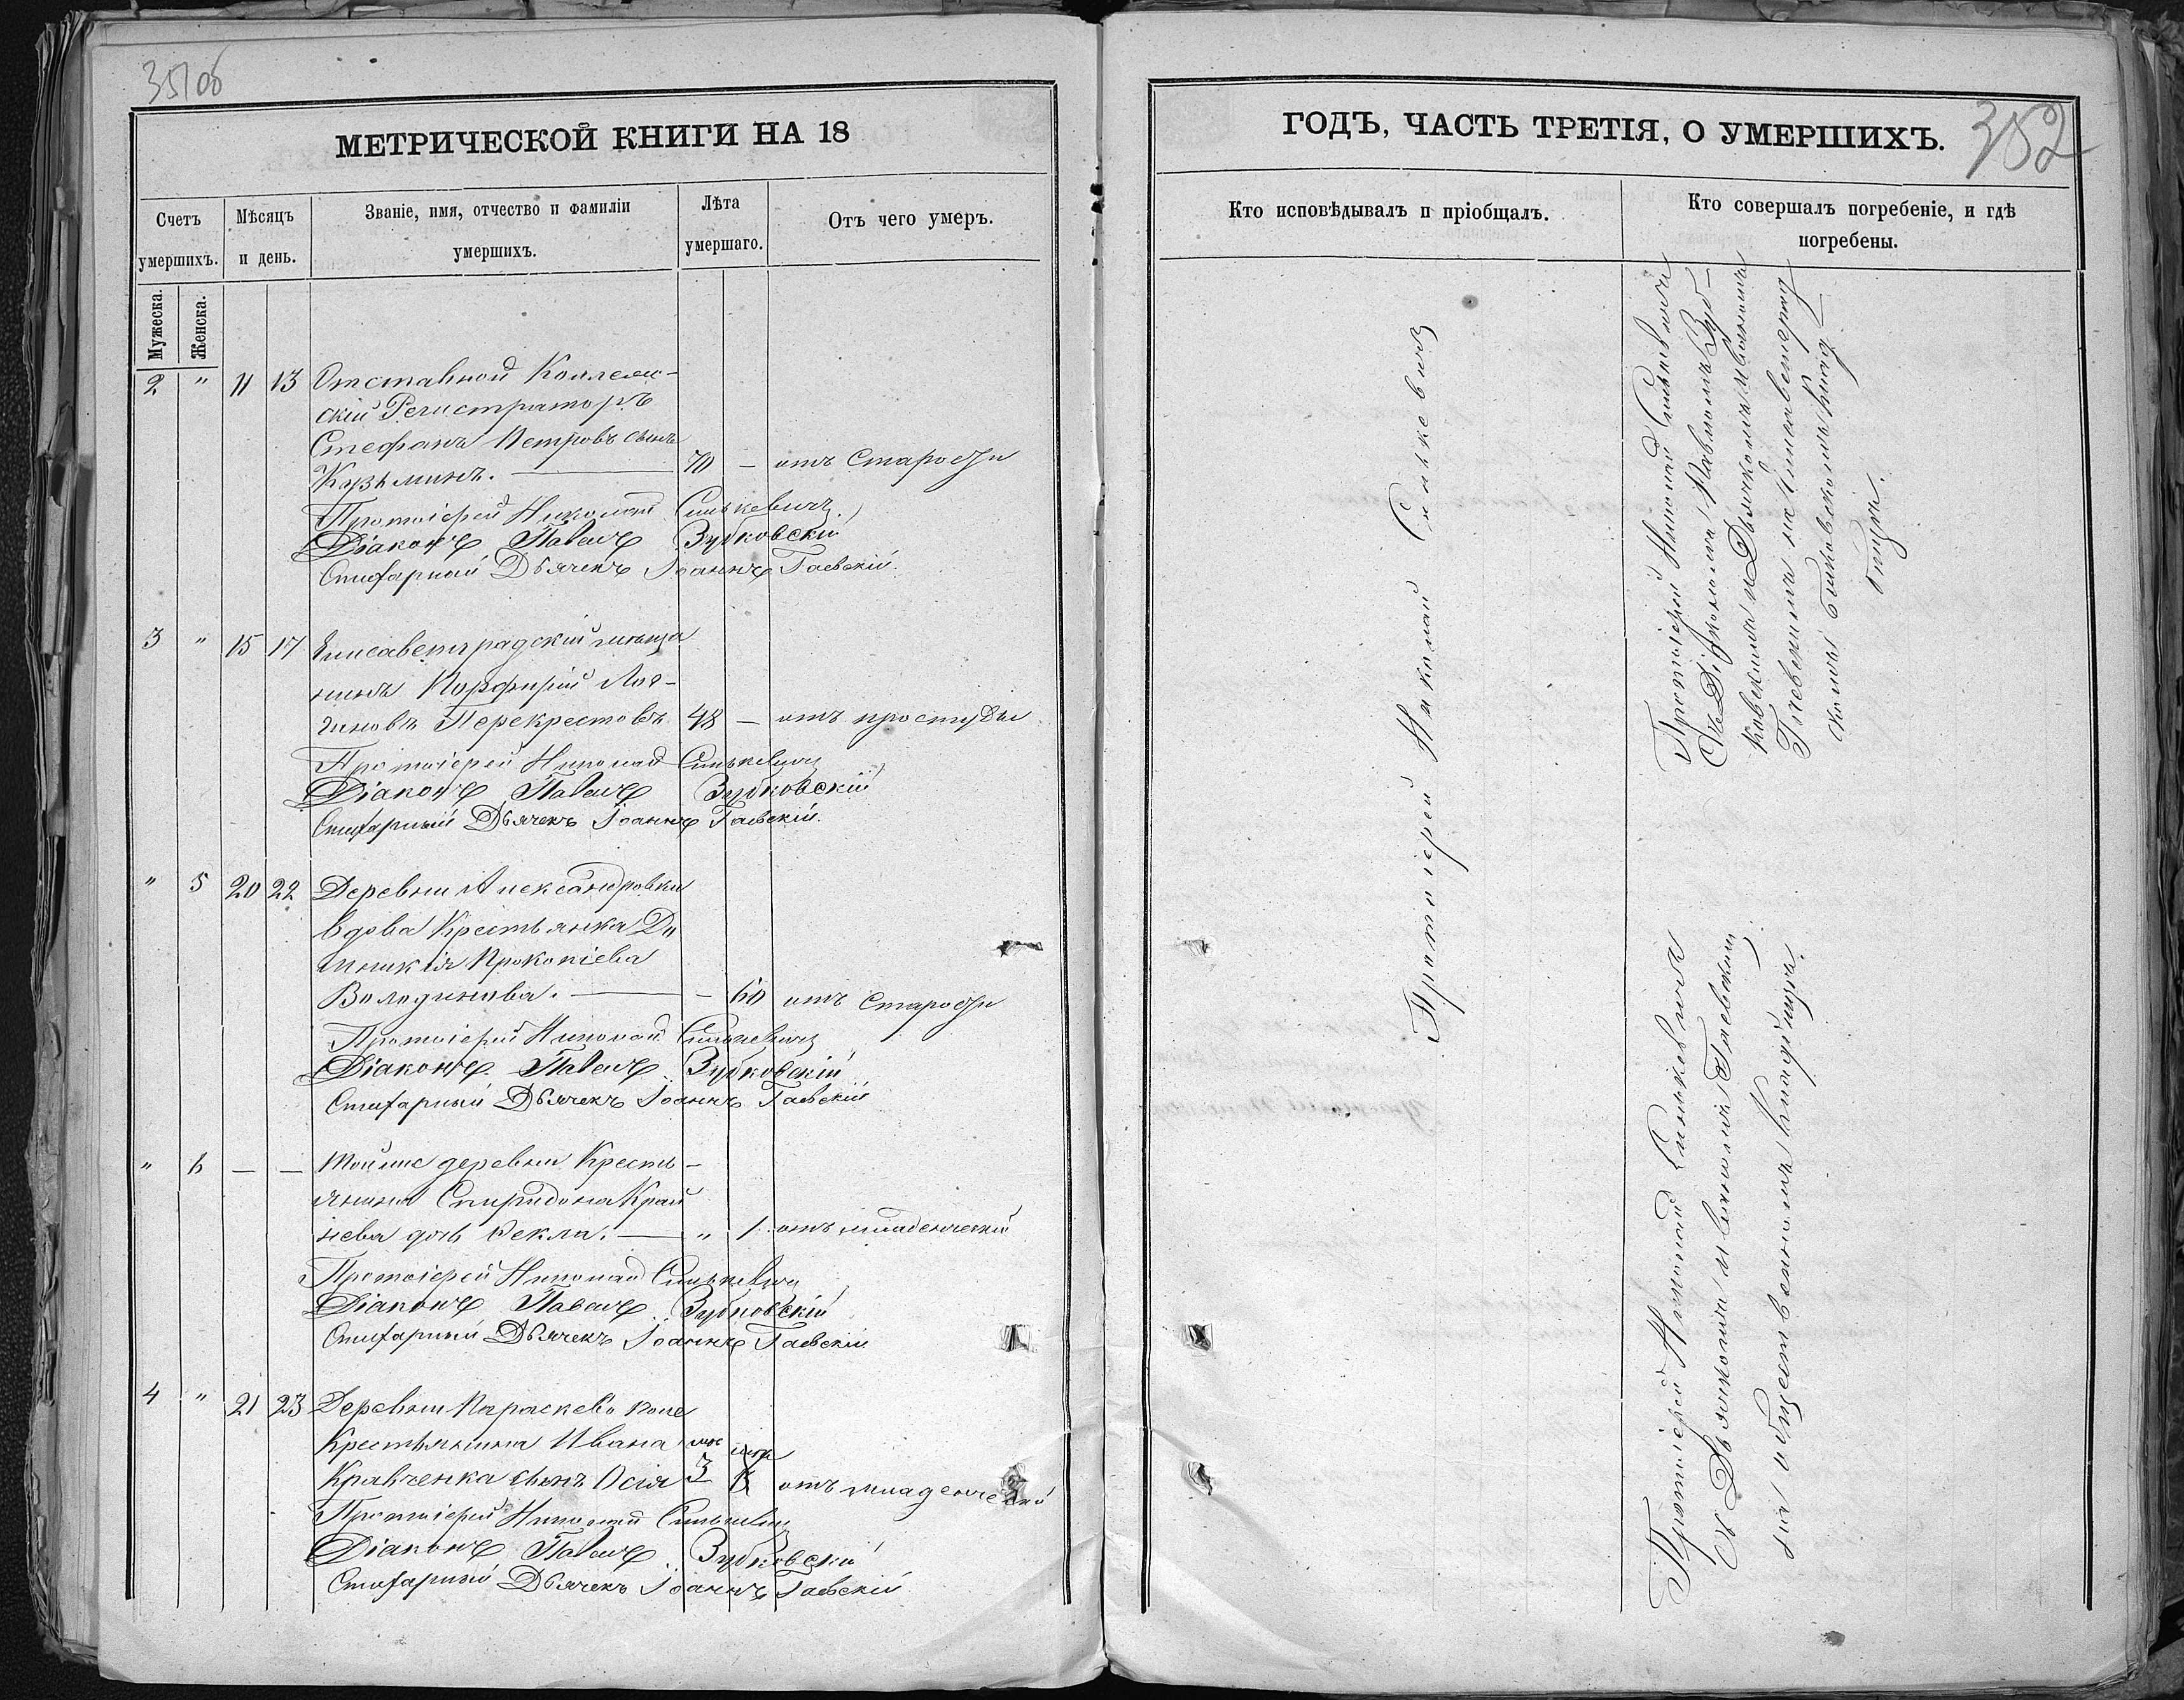 351об
МЕТРИЧЕСКОЙ КНИГИ НА 18
Счетъ умершихъ.
Мужеска.
Женска.
Мѣсяцъ и день.
Званіе, имя, отчество и фамиліи
умершихъ.
Лѣта
умершаго.
Отъ чего умеръ.
2 " 11 13 Отставной Коллеж-
скій Регистраторъ
Стефанъ Петровъ сынъ
Кузьминъ. — 70 — отъ старости
Протоіерей Николай Синькевичъ
Діаконъ Павелъ Зубковскій
Стихарный Дьячекъ Іоаннъ Гаевскій.
3 " 15 17 Елисаветградскій мѣща
нинъ Порфирій Лог-
гиновъ Перекрестовъ 48 — отъ простуды
Протоіерей Николай Синькевичъ
Діаконъ Павелъ Зубковскій
Стихарный Дьячекъ Іоаннъ Гаевскій.
" 5 20 22 Деревни Александровки
вдова Крестьянка До
мникія Прокопіева
— 60 отъ старости
Протоіерей Николай Синькевичъ
Діаконъ Павелъ Зубковскій
Стихарный Дьячекъ Іоаннъ Гаевскій
" 6 — — Той же деревни Кресть-
янина Спиридона Край
нева дочь Фекла. — " 1 отъ младенческой
Протоіерей Николай Синькевичъ
Діаконъ Павелъ Зубковскій
Стихарный Дьячекъ Іоаннъ Гаевскій
4 " 21 23 Деревни
Крестьянина Ивана
Кравченка сынъ Осія 3 отъ младенческой
Протоіерей Николай Синькевичъ
Діаконъ Павелъ Зубковскій
Стихарный Дьячекъ Іоаннъ Гаевскій
ГОДЪ, ЧАСТЬ ТРЕТІЯ, О УМЕРШИХЪ.
352
Кто исповѣдывалъ и пріобщалъ.
Кто совершалъ погребеніе, и гдѣ
погребены.
Протоіерей Николай Синькевичъ
Протоіерей Николай Синькевичъ
съ Діакономъ Павломъ Зуб-
ковскимъ и Дьячкомъ Іоанномъ
Гаевскимъ на
кладби-
щѣ.
Протоіерей Николай Синькевичъ
съ Дьячкомъ Іоанномъ Гаевскимъ
на общественномъ кладбищѣ.